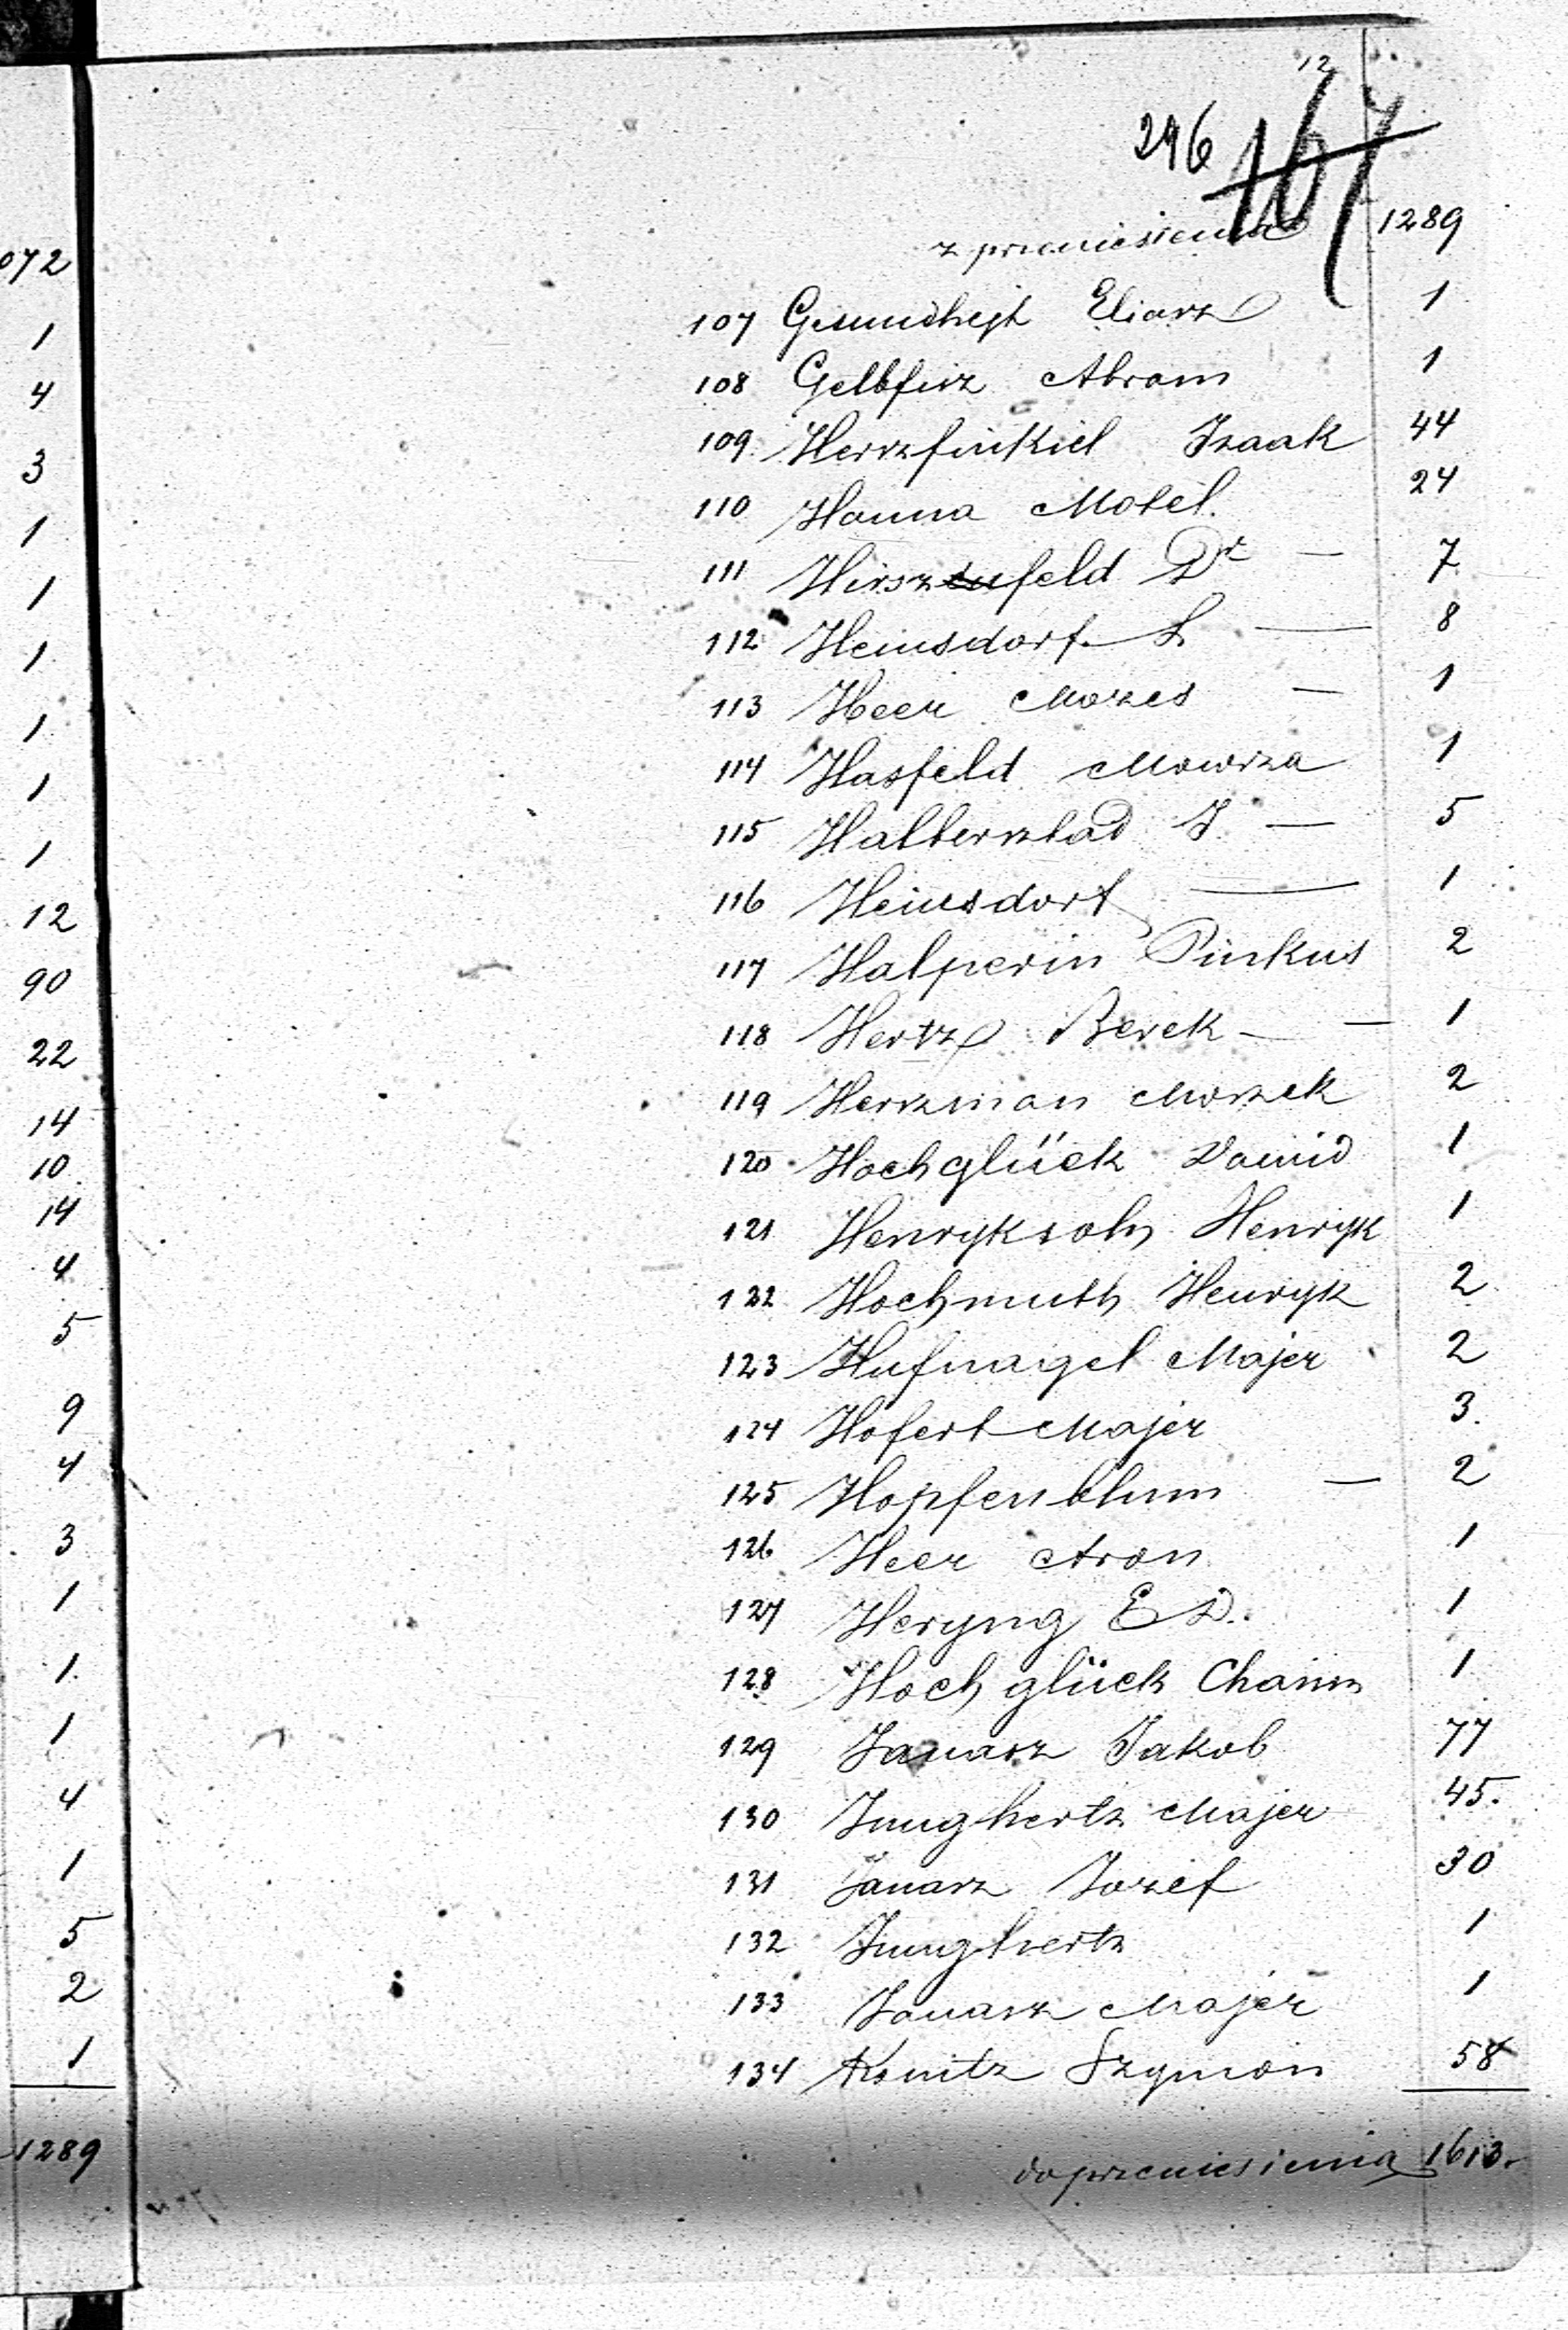 072
1
4
3
1
1
1
1
1
1
12
90
22
14
10
14
4
5
9
4
3
1
1
1
4
1
5
2
1
1289
12
296 167
z przeniesienia 1289
107 Gesundhejt Eliasz 1
108 Gelbfisz Abram 1
109 Herszfinkiel Izaak 44
110 Hanna Motel. 24
111 Hirszenfeld Dr — 7
112 Heinsdorf L — 8
113 Heer Mozes — 1
114 Hasfeld Mowsza 1
115 Halbersztad J. — 5
116 Heinsdorf — 1
117 Halperin Pinkus 2
118 Hertz Berek — 1
119 Herszman Moszek 2
120 Hochglück Dawid 1
121 Henryksohn Henryk 1
122 Hochmuth Henryk 2
123 Hufnagel Majer 2
124 Hofert Majer 3.
125 Hopfenblum — 2
126 Heer Aron 1
127 Heryng E D. 1
128 Hochglück Chaim 1
129 Janasz Jakob 77
130 Junghertz Majer 45.
131 Janasz Jozef 30
132 Junghertz 1
133 Janasz Majer 1
134 Konitz Szymon 58
do przeniesienia 1613.